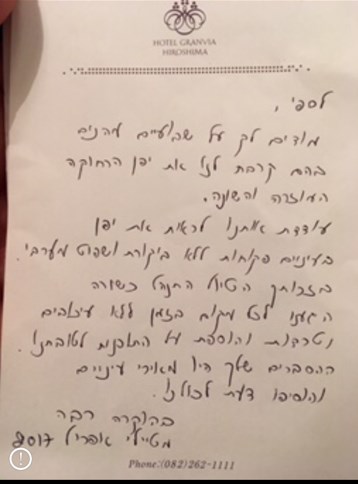 HOTEL GRANVIA
HIROSHIMA
לספי,
מודים לך על שבועיים מהנים
בהם קרבת לנו את יפן הרחוקה
המוזרה והשונה.
עודדת אותנו לראות את יפן
בעיניים פקוחות ללא ביקורת ושפוט מערבי.
בזכותך הטיול התנהל כשורה
הגענו לכל מקום בזמן ללא עיכובים
וטרבות והוספת על התוכנית לטובתנו.
ההסברים שלך היו מאירי עיניים
והוסיפו דעת לכולנו.
בהוקרה רבה
מטיילי אפריל 2017
Phone:(082)262-1111